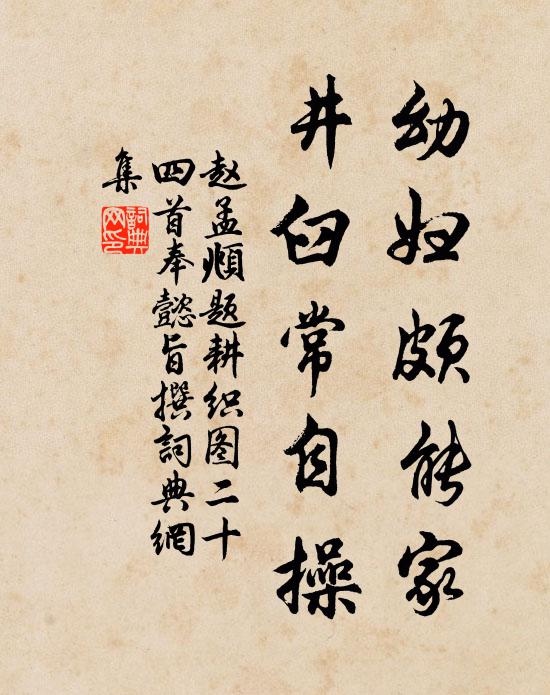 幼妇颇能家
井臼常自操
赵孟頫题耕织图二十
四首奉懿旨撰詞典網
集
詞典
网印